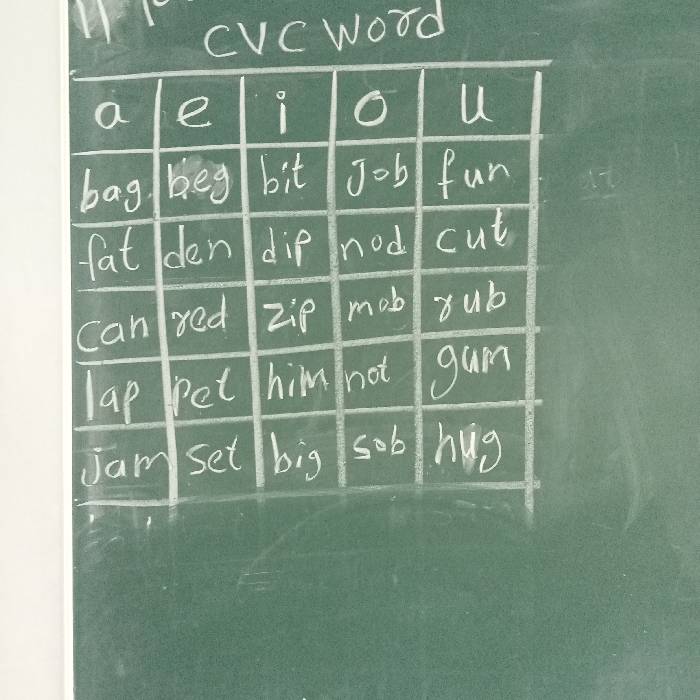 CVC Word
a e i o u
bag beg bit Job fun
fat den dip nod cut
can red zip mob rub
lap pet him not gum
Jam set big sob hug